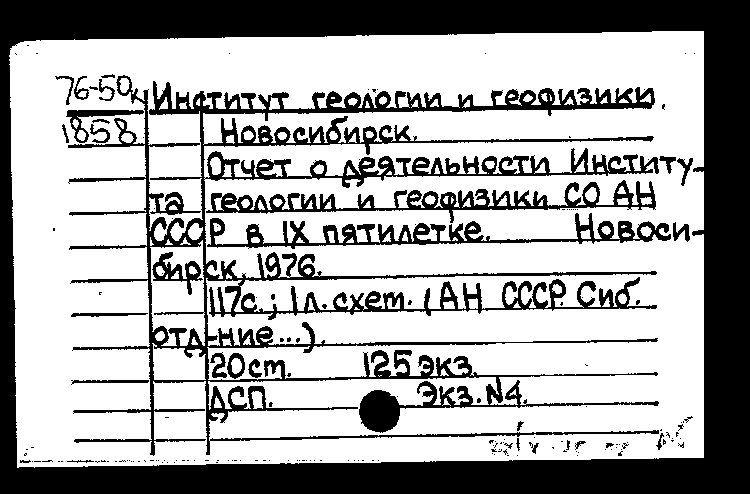 76-50к Институт геологии и геофизики.
1858 Новосибирск.
Отчет о деятельности Институ-
та геологии и геофизики СО АН
СССР в IX пятилетке. Новоси-
бирск, 1976.
117с.; 1 л. схем. (АН СССР. Сиб.
отд-ние...).
20см. 125 экз.
ДСП. Экз. N4.